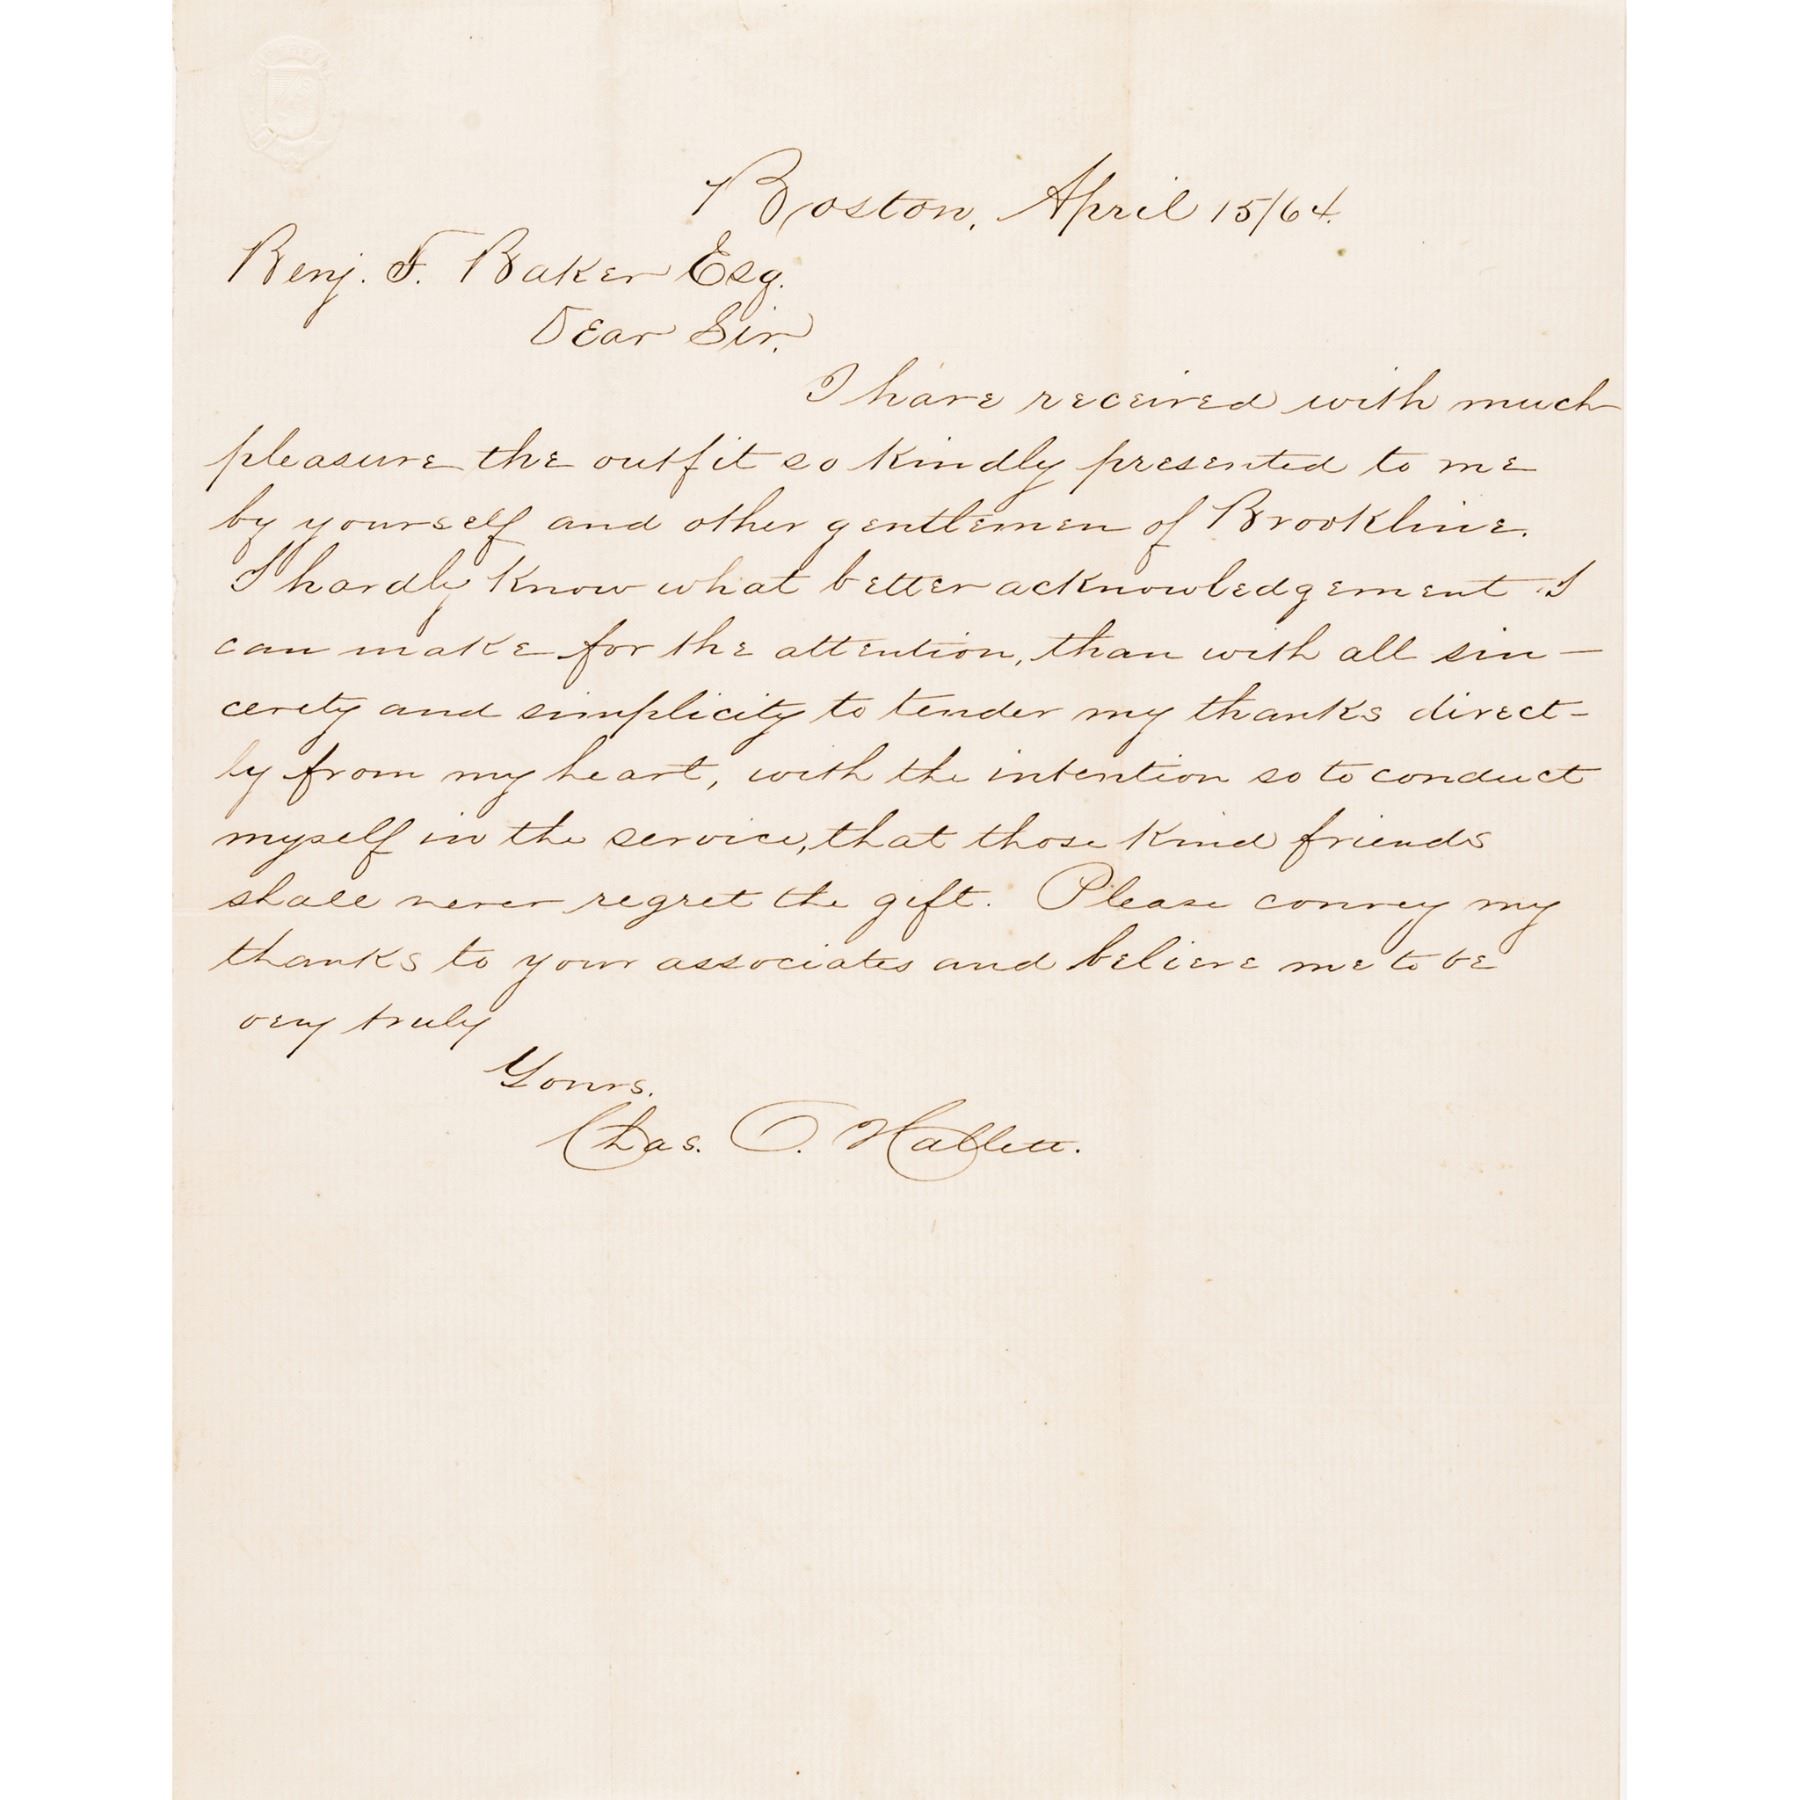 Boston, April 15/64.
Benj. F. Baker Esq.
Dear Sir,
I have received with much
pleasure the outfit so kindly presented to me
by yourself and other gentlemen of Brookline.
I hardly know what better acknowledgement I
can make for the attention, than with all sin-
cerity and simplicity to tender my thanks direct-
ly from my heart, with the intention so to conduct
myself in the service, that those kind friends
shall never regret the gift. Please convey my
thanks to your associates and believe me to be
very truly
Yours.
Chas. O. Hallett.